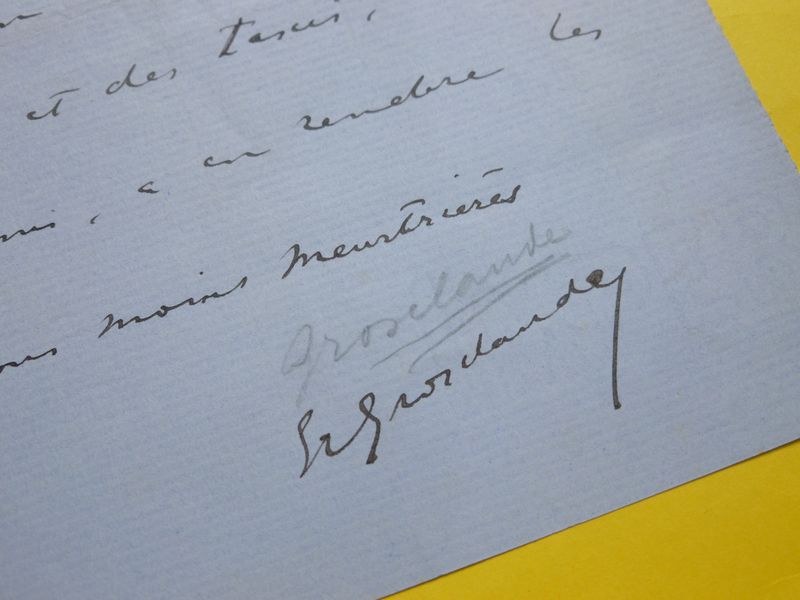 et des taxis,
les
, a en rendre
moins meurtrières
Grosclaude
Et Grosclaude